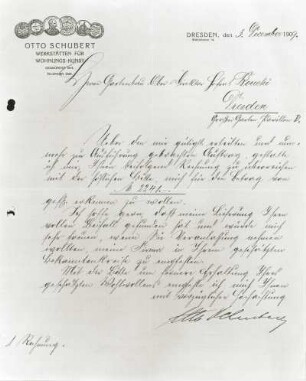 OTTO SCHUBERT
WERKSTÄTTEN FÜR
WOHNUNGS-KUNST
DRESDEN, den 3. December 1907.
Herrn Gartenbau
Dresden
Großer Garten Pavillon
Ueber den mir gütigst erteilten und nun-
mehr zur Ausführung gebrachten Auftrag, gestatte
ich mir, Ihnen beifolgend Rechnung zu überreichen
mit der höflichen Bitte mich für den Betrag von
M 2241.-
gefl. erkennen zu wollen.
Ich hoffe gern, daß meine Lieferung Ihren
vollen Beifall gefunden hat und würde mich
sehr freuen, wenn Sie Veranlassung nehmen
wollten, meine Firma in Ihrem geschätzten
Bekanntenkreise zu empfehlen.
Mit der Bitte um fernere Erhaltung Ihres
geschätzten Wohlwollens empfehle ich mich Ihnen
mit vorzüglicher Hochachtung
Otto Schubert
1 Rechnung.